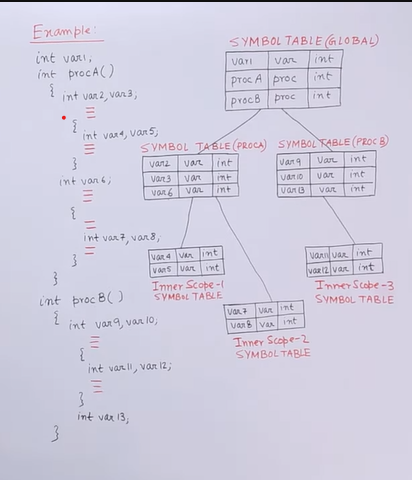 Example:
int var1;
int procA()
{ int var2, var3;
{ int var4, var5;
}
int var6;
{
int var7, var8;
}
}
int procB()
{ int var9, var10;
{
int var11, var12;
}
int var13;
}
SYMBOL TABLE (GLOBAL)
var1 var int
procA proc int
procB proc int
SYMBOL TABLE (PROCA)
var2 var int
var3 var int
var6 var int
SYMBOL TABLE (PROC B)
var9 var int
var10 var int
var13 var int
var4 var int
var5 var int
Inner Scope-1
SYMBOL TABLE
var11 var int
var12 var int
Inner Scope-3
SYMBOL TABLE
var7 var int
var8 var int
Inner Scope-2
SYMBOL TABLE